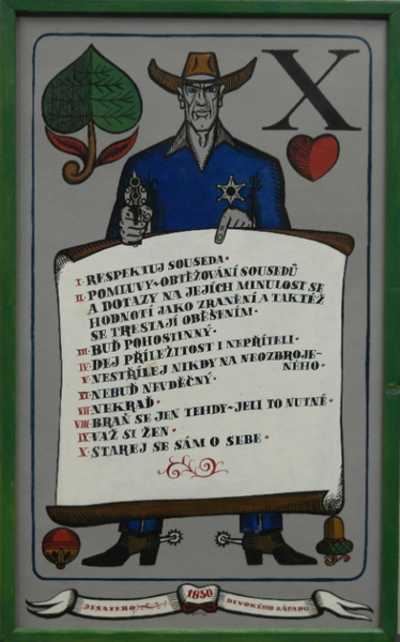 X
I. RESPEKTUJ SOUSEDA.
II. POMLUVY-OBTĚŽOVÁNÍ SOUSEDŮ
A DOTAZY NA JEJÍCH MINULOST SE
HODNOTÍ JAKO ZRANĚNÍ A TAKTÉŽ
SE TRESTAJÍ OBĚŠENÍM.
III. BUĎ POHOSTINNÝ.
IV. DEJ PŘÍLEŽITOST I NEPŘÍTELI.
V. NESTŘÍLEJ NIKDY NA NEOZBROJE-
NÉHO.
VI. NEBUĎ NEVDĚČNÝ.
VII. NEKRAĎ.
VIII. BRAŇ SE JEN TEHDY-JELI TO NUTNÉ.
IX. VAŽ SI ŽEN.
X. STAREJ SE SÁM O SEBE.
DESATERO 1850 DIVOKÉHO ZÁPADU